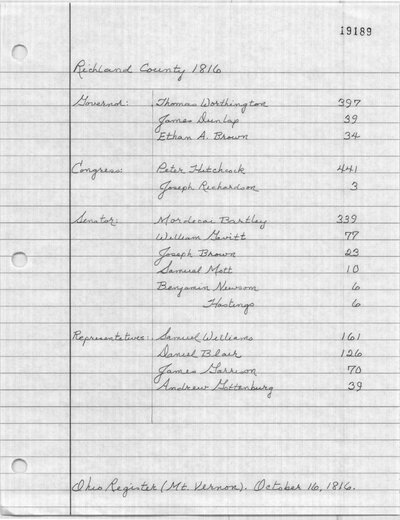 19189
Richland County 1816
Governor: Thomas Worthington 397
James Dunlap 39
Ethan A. Brown 34
Congress: Peter Hitchcock 441
Joseph Richardson 3
Senator: Mordecai Bartley 339
William Gavitt 77
Joseph Brown 23
Samuel Mott 10
Benjamin Newsom 6
Hastings 6
Representatives: Samuel Williams 161
Daniel Blair 126
James Garrison 70
Andrew Gottenburg 39
Ohio Register (Mt. Vernon). October 16, 1816.